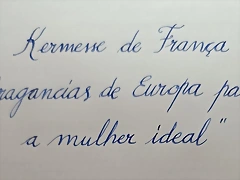 Kermesse de França
ragancias de Europa pa
a mulher ideal"